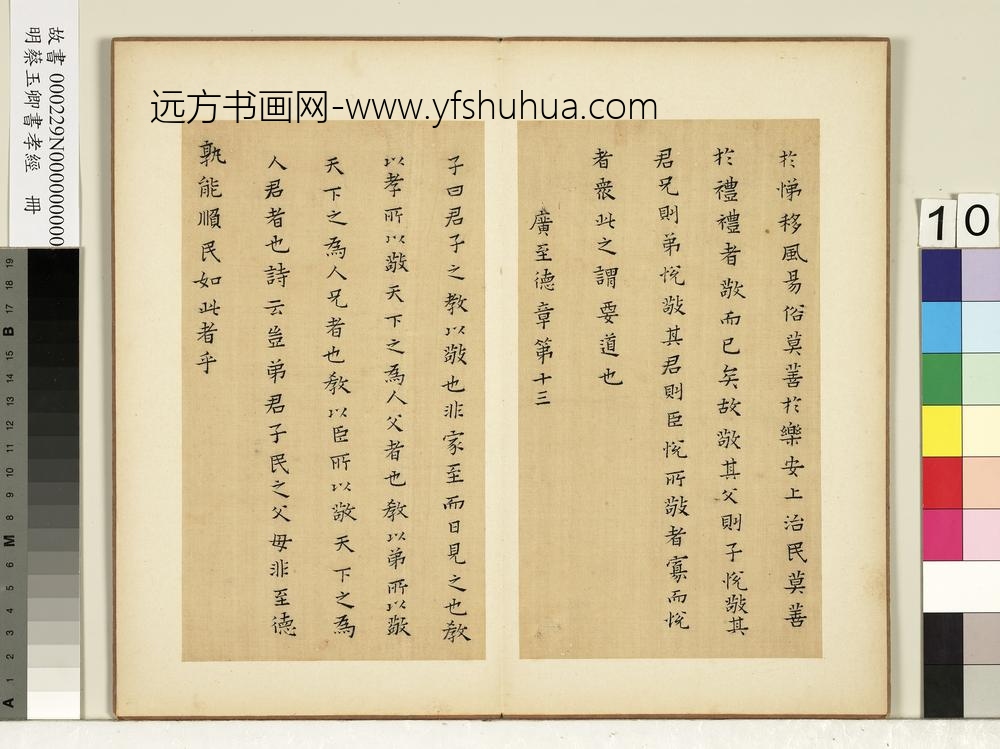 故書 000229N000000000
明蔡玉卿書孝經 冊
远方书画网-www.yfshuhua.com
於悌移風易俗莫善於樂安上治民莫善
於禮禮者敬而已矣故敬其父則子悅敬其
君兄則弟悅敬其君則臣悅所敬者寡而悅
者衆此之謂要道也
廣至德章第十三
子曰君子之教以敬也非家至而日見之也教
以孝所以敬天下之為人父者也教以弟所以敬
天下之為人兄者也教以臣所以敬天下之為
人君者也詩云豈弟君子民之父母非至德
孰能順民如此者乎
10
A 1 2 3 4 5 6 M 8 9 10 11 12 13 14 15 B 17 18 19